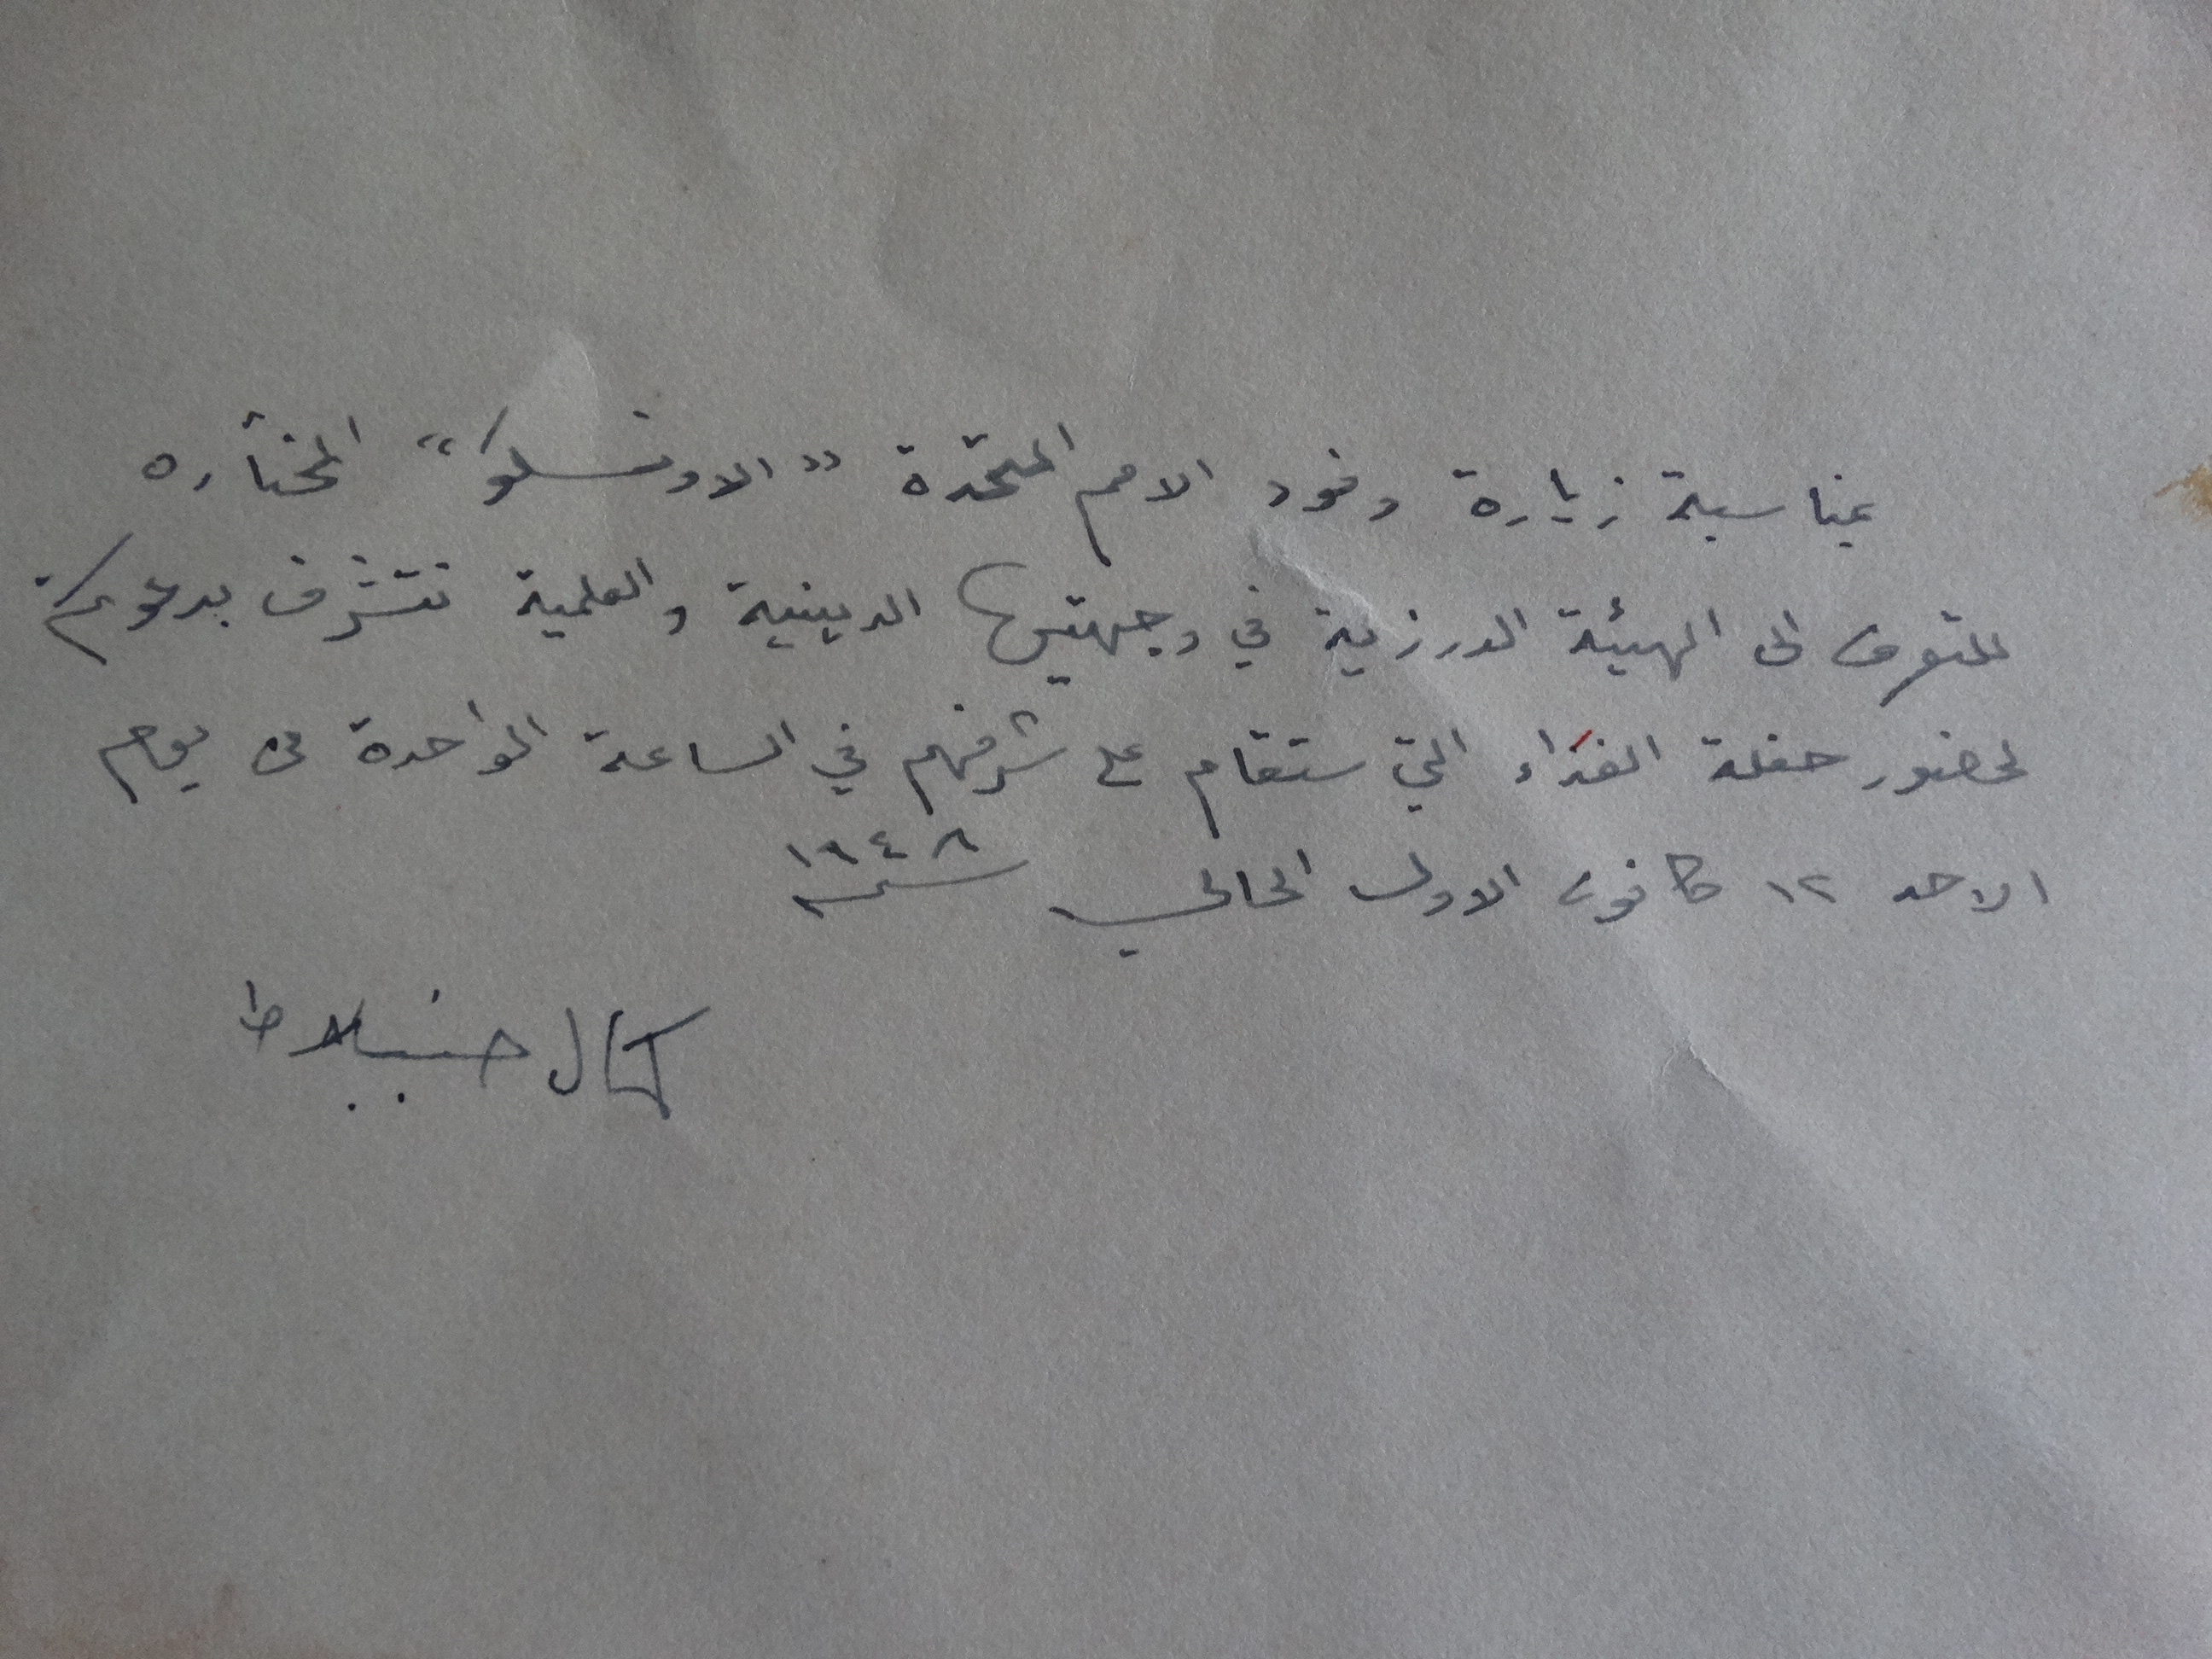 بمناسبة زيارة وفود الامم المتحدة "الاونسكو" المختاره
للتعرف الى الهيئة الدرزية في وجهتيها الدينية والعلمية نتشرف بدعوتكم
لحضور حفلة الغداء التي ستقام على شرفهم في الساعة الواحدة من يوم
الاحد ١٢ كانون الاول الحالي سنة ١٩٤٨
كمال جنبلاط